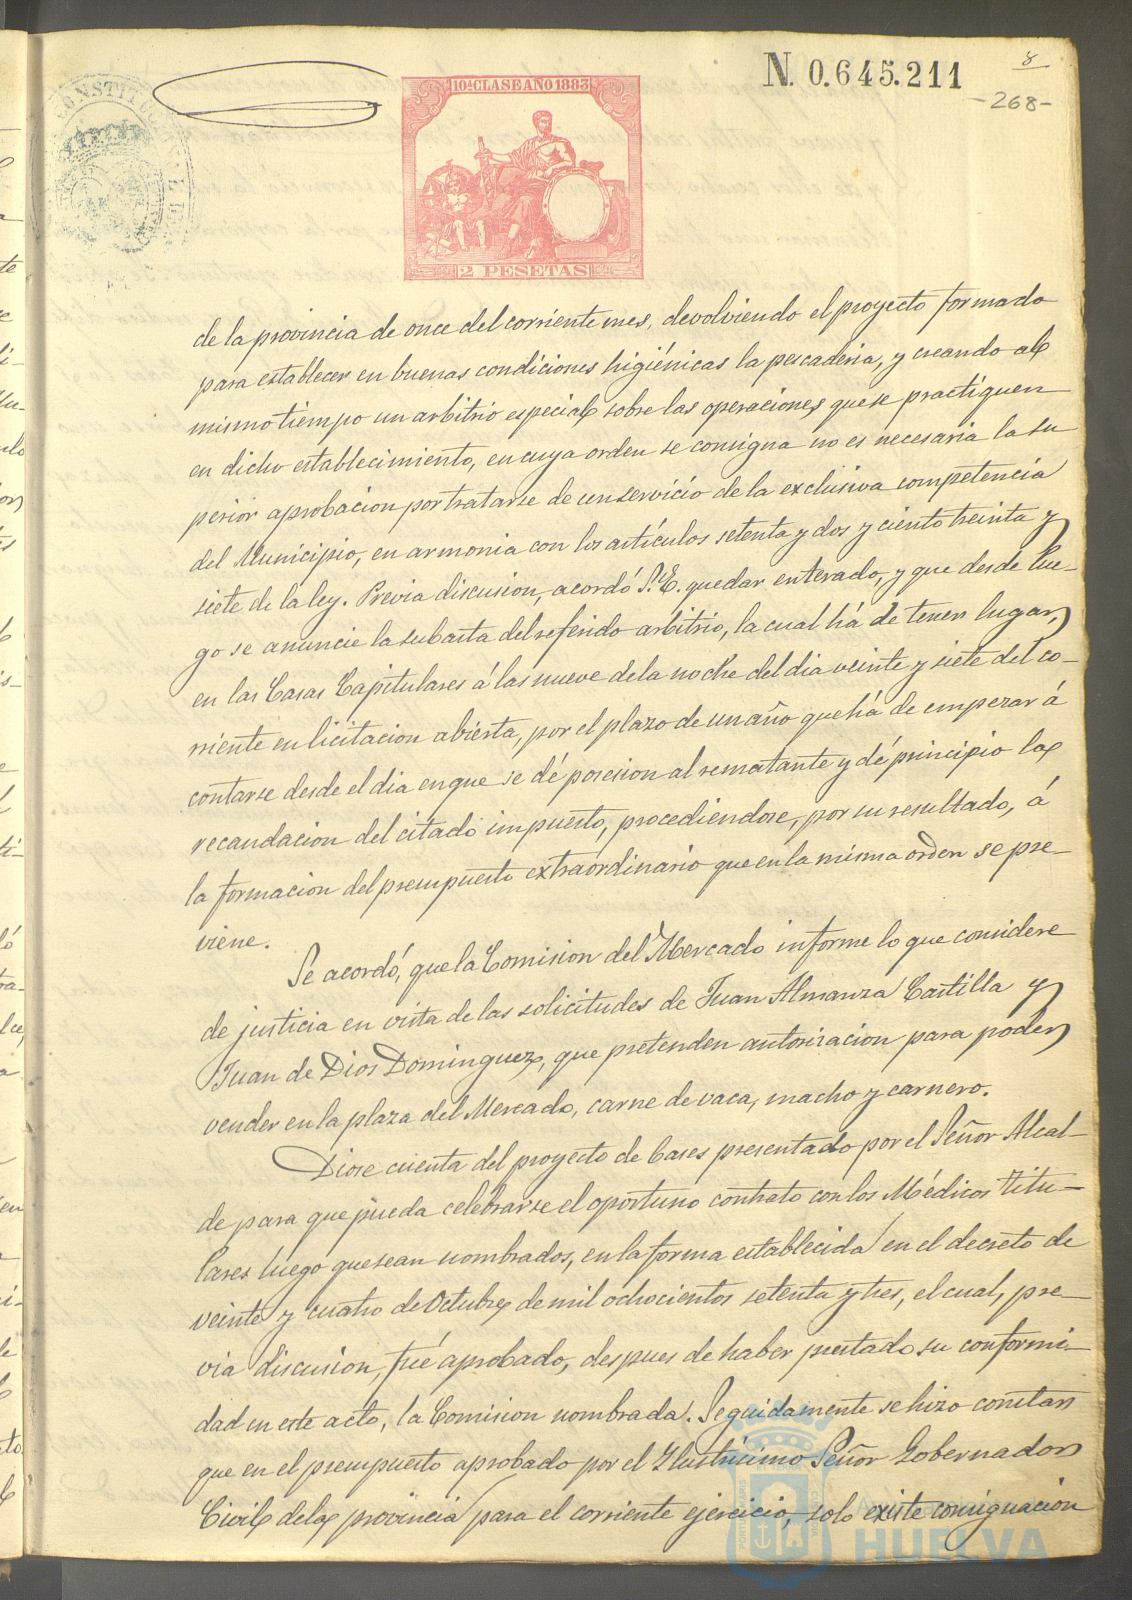 N. 0.645.211
8
-268-
CONSTITUC
10ª CLASE AÑO 1883
2 PESETAS
de la provincia de once del corriente mes, devolviendo el proyecto formado
para establecer en buenas condiciones higiénicas la pescaderia, y creando al
mismo tiempo un arbitrio especial sobre las operaciones que se practiquen
en dicho establecimiento, en cuya orden se consigna no es necesaria la su
perior aprobacion por tratarse de un servicio de la exclusiva competencia
del Municipio, en armonia con los artículos setenta y dos y ciento treinta y
siete de la ley. Previa discusion, acordó S.E. quedar enterado, y que desde lue-
go se anuncie la subasta del referido arbitrio, la cual há de tener lugar,
en las Casas Capitulares á las nueve de la noche del dia veinte y siete del co-
rriente en licitacion abierta, por el plazo de un año que há de empezar á
contarse desde el dia en que se dé posesion al rematante y dé principio la
recaudacion del citado impuesto, procediendose, por su resultado, á
la formacion del presupuesto extraordinario que en la misma orden se pre-
viene.
Se acordó, que la Comision del Mercado informe lo que considere
de justicia en vista de las solicitudes de Juan Almanza Castilla y
Juan de Dios Dominguez, que pretenden autorizacion para poder
vender en la plaza del Mercado, carne de vaca, macho y carnero.
Diose cuenta del proyecto de bases presentado por el Señor Alcal-
de para que pueda celebrarse el oportuno contrato con los Médicos titu-
lares luego que sean nombrados, en la forma establecida en el decreto de
veinte y cuatro de Octubre de mil ochocientos setenta y tres, el cual, pre-
via discusion, fué aprobado, despues de haber prestado su conformi-
dad en este acto, la Comision nombrada. Seguidamente se hizo constar
que en el presupuesto aprobado por el Ilustrísimo Señor Gobernador
Civil de la provincia para el corriente ejercicio, solo existe consignacion
HUELVA